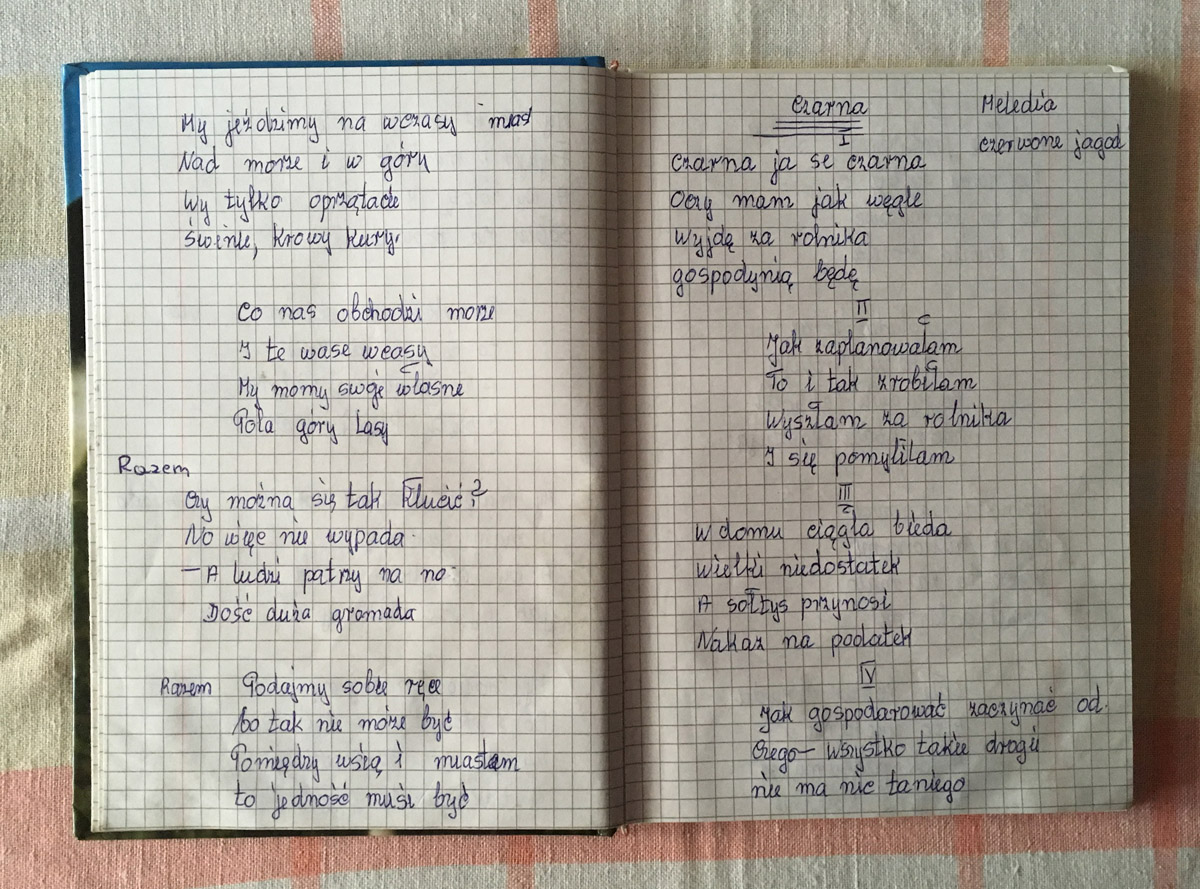 My jeździmy na wczasy
Nad morze i w góry
Wy tylko oprzątacie
Świnie, krowy kury.
Co nas obchodzi morze
I te wase wcasy
My momy swoje własne
Pola góry lasy
Razem
Czy można się tak kłucić?
No więc nie wypada
- A ludzi patrzy na no
Dość duża gromada
Razem Podajmy sobie ręce
bo tak nie może być
Pomiędzy wsią i miastem
to jedność musi być
Czarna
Melodia
czerwone jagod
I
Czarna ja se czarna
Oczy mam jak węgle
Wyjdę za rolnika
gospodynią będę
II
Jak zaplanowałam
To i tak zrobiłam
Wyszłam za rolnika
I się pomyliłam
III
W domu ciągła bieda
Wielki niedostatek
A sołtys przynosi
Nakaz na podatek
IV
Jak gospodarować zaczynać od
czego - wszystko takie drogie
nie ma nic taniego